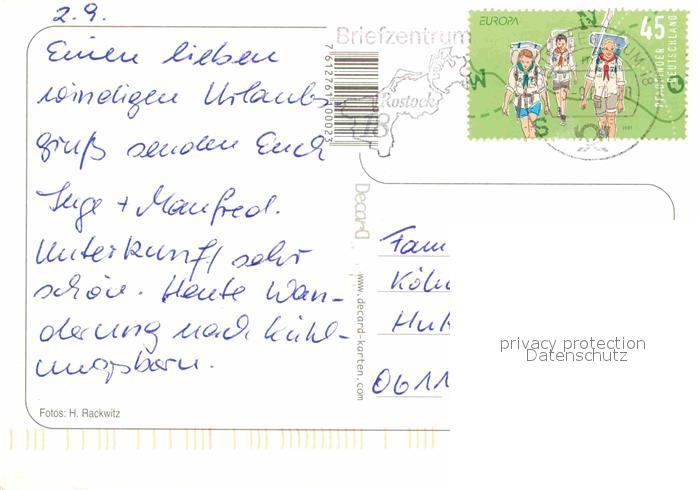 2.9.
Einen lieben
windigen Urlaubs
gruß senden Euch
Inge + Manfred.
Unterkunft sehr
schön. Heute Wan-
derung nach Kühl-
ungsborn.
Fotos: H. Rackwitz
Briefzentrum
Rostock
18
7612761400023
Decard
www.decard-karten.com
EUROPA
45
PFADFINDER
DEUTSCHLAND
N
W
O
S
Fam
Köln
0611
privacy protection
Datenschutz